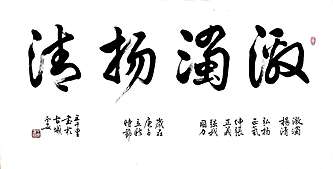 激濁扬清
激濁
揚清
弘扬
正氣
伸張
正義
强我
國力
歲在
庚子
立秋
時節
書於
古城